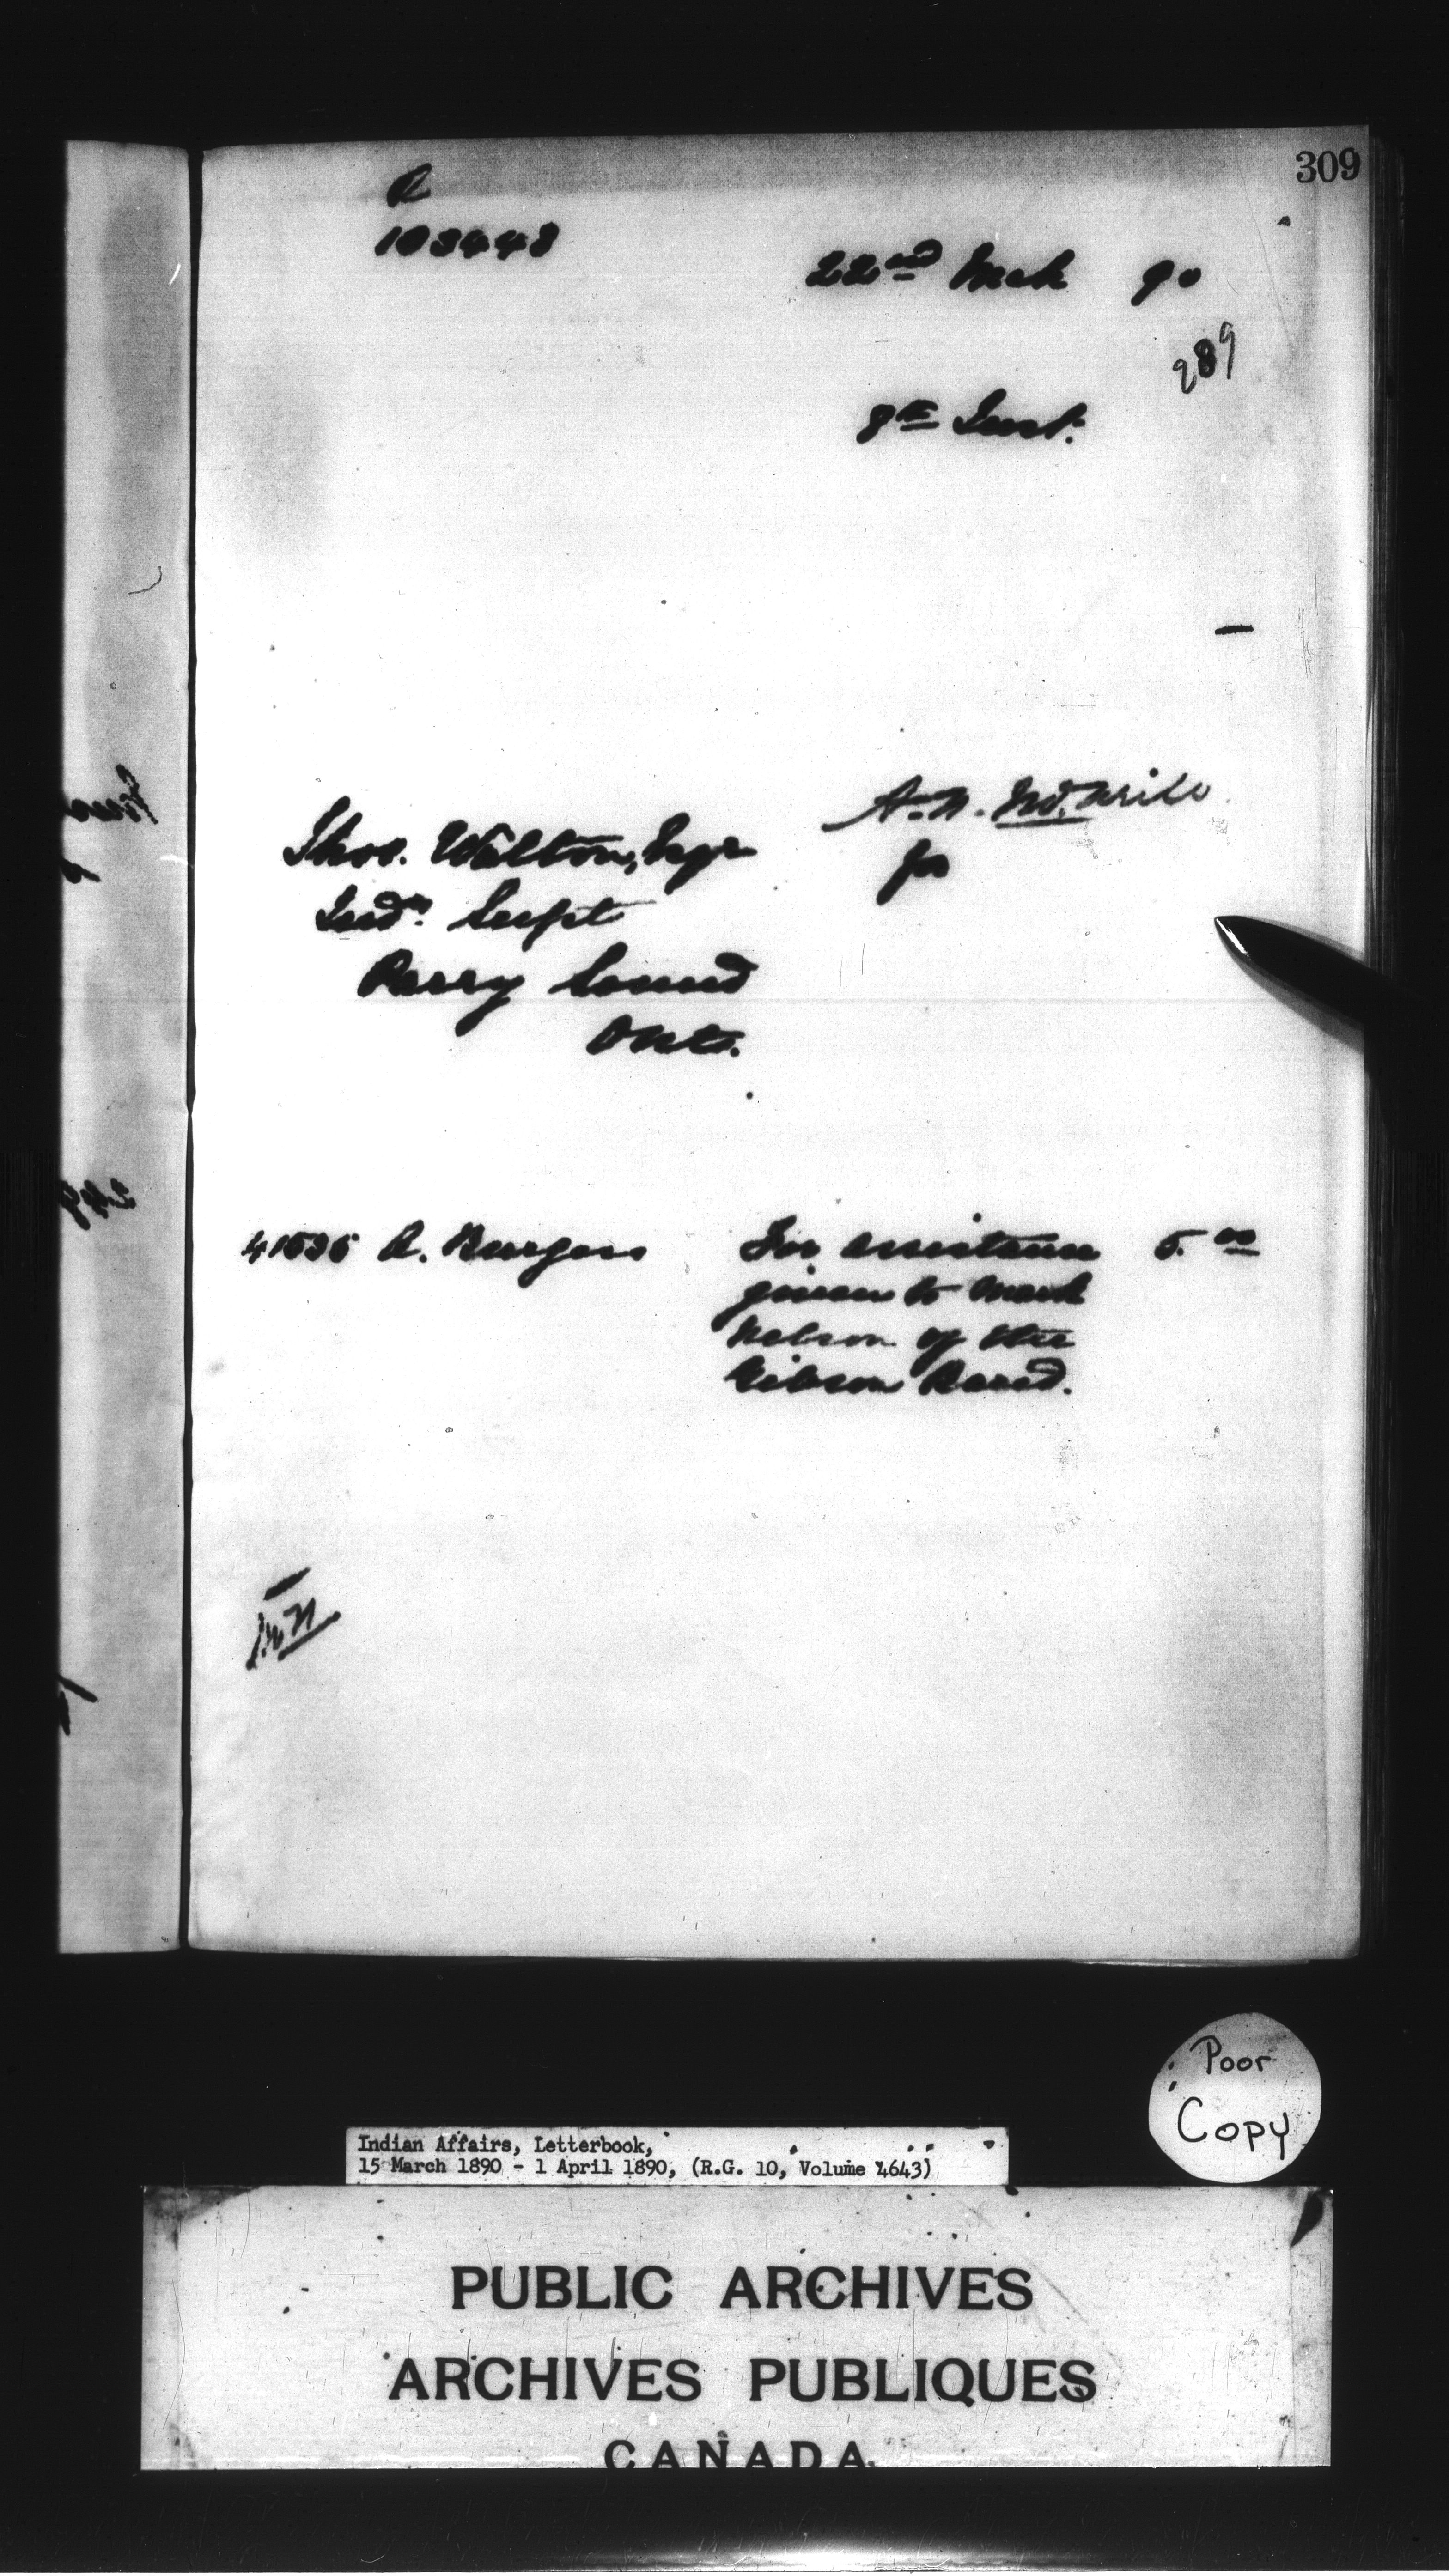 309
R
103448
22nd Mch 90
289
8th Inst.
A. N. McNeill
for
Thos. Walton, Esqr
Indn. Supt
Parry Sound
Ont.
41535 R. Burgess For assistance 5.00
given to Mark
Nelson of the
Gibson Band.
Poor
Copy
Indian Affairs, Letterbook,
15 March 1890 - 1 April 1890, (R.G. 10, Volume 4643)
PUBLIC ARCHIVES
ARCHIVES PUBLIQUES
CANADA